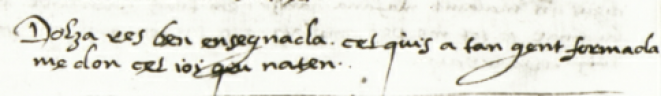 Dolza res ben ensegnada. cel quis a tan gent formada
me don cel ioi naten.